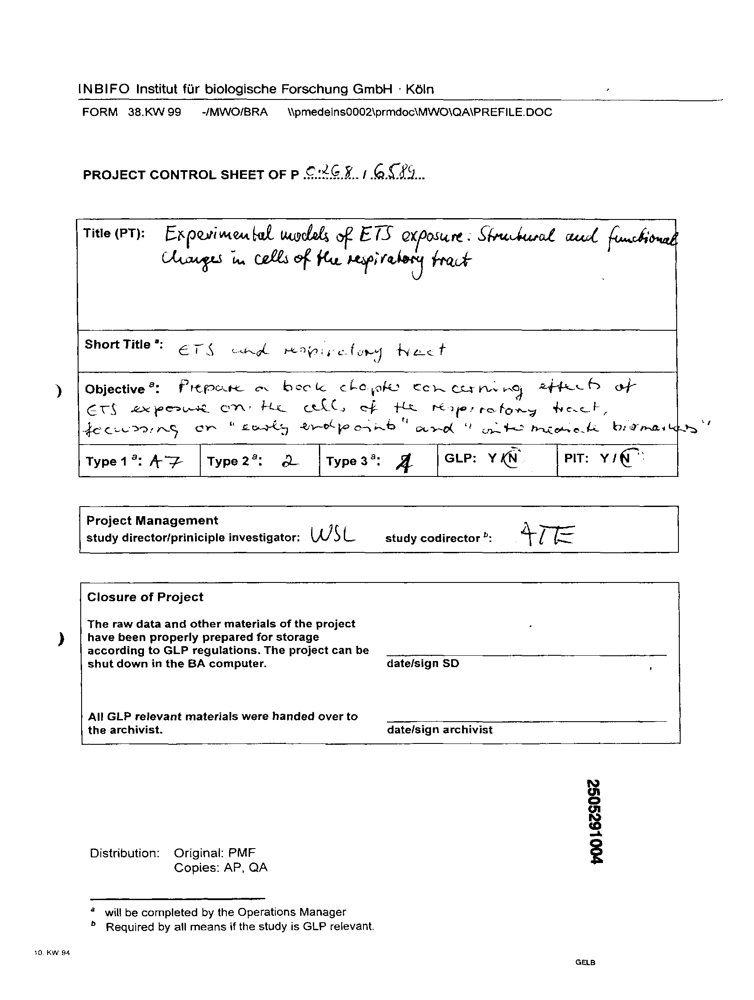 INBIFO Institut für biologische Forschung GmbH · Köln
FORM 38.KW 99 -/MWO/BRA \\pmedeins0002\prmdoc\MWO\QA\PREFILE.DOC
PROJECT CONTROL SHEET OF P 0268 / 6589
Title (PT): Experimental models of ETS exposure: Structural and functional
changes in cells of the respiratory tract
Short Title a: ETS and respiratory tract
Objective a: Prepare a book chapter concerning effects of
ETS exposure on the cells of the respiratory tract,
focussing on "early endpoints" and "intermediate biomarkers"
Type 1 a: A7 Type 2 a: 2 Type 3 a: GLP: Y/N PIT: Y/N
Project Management
study director/priniciple investigator: WSL study codirector b: ATE
Closure of Project
The raw data and other materials of the project
have been properly prepared for storage
according to GLP regulations. The project can be
shut down in the BA computer. date/sign SD
All GLP relevant materials were handed over to
the archivist. date/sign archivist
2505291004
Distribution: Original: PMF
Copies: AP, QA
a will be completed by the Operations Manager
b Required by all means if the study is GLP relevant.
10. KW 94
GELB